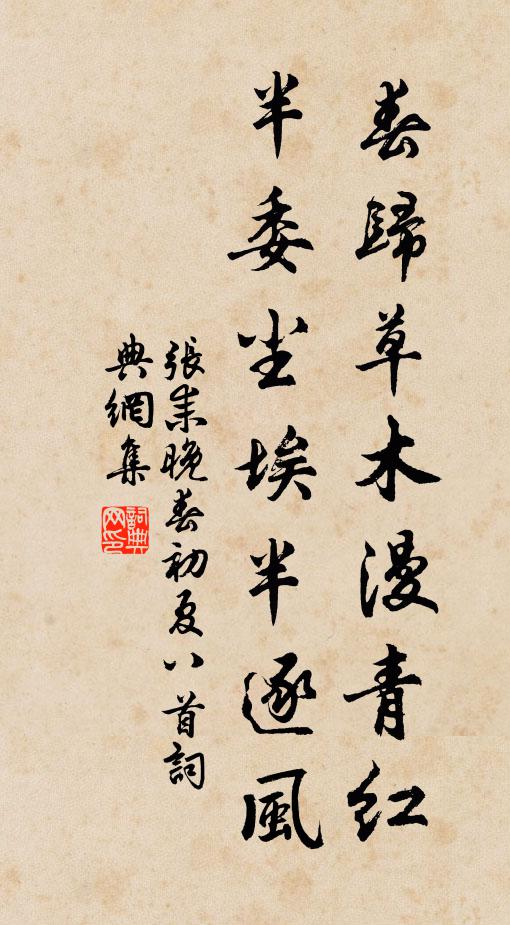 春歸草木漫青紅
半委尘埃半逐風
張耒晚春初夏八首詞
典網集
詞典網印